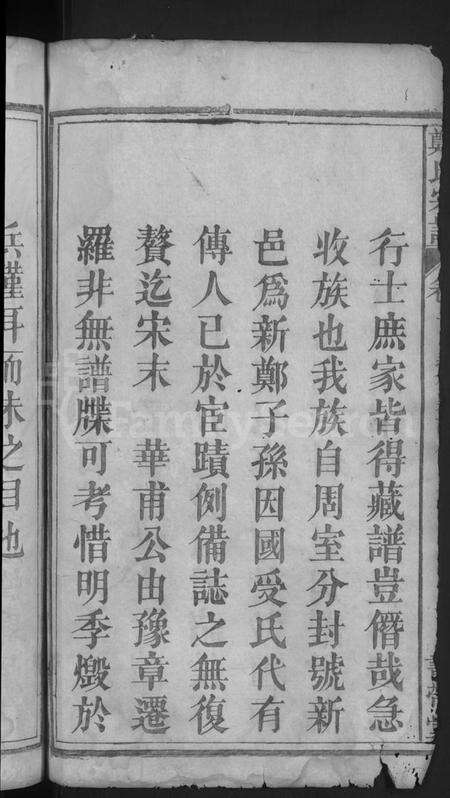 行士庶家皆得藏譜豈僭哉急
收族也我族自周室分封號新
邑爲新鄭子孫因國受氏代有
傳人已於宦蹟例備誌之無復
贅迄宋末 華甫公由豫章遷
羅非無譜牒可考惜明季燬於
兵僅耳
之目也
FamilySearch